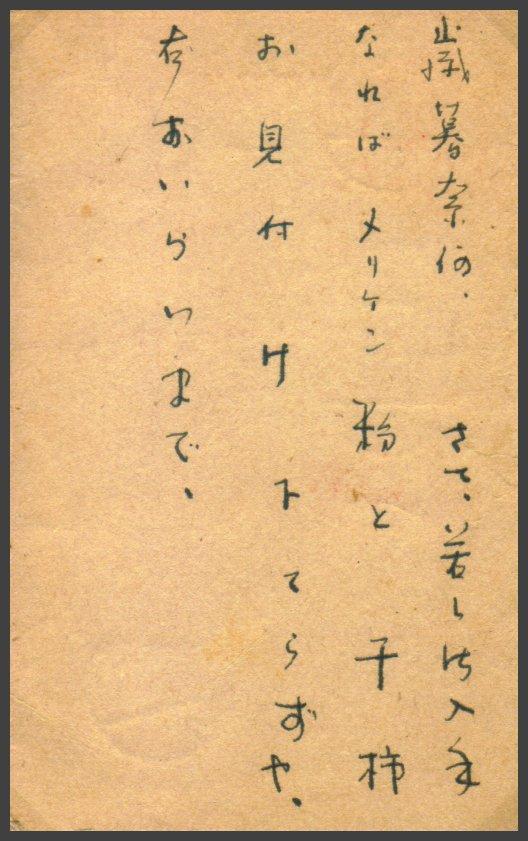 歳暮奈何、さて、若し御入手
なれば メリケン粉と干柿
お見付け下さらずや、
右おいらいまで、